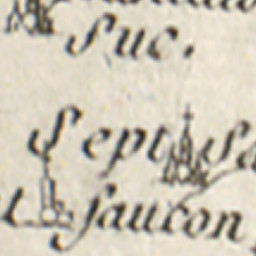 Suc.
Sept Sa
t faucon